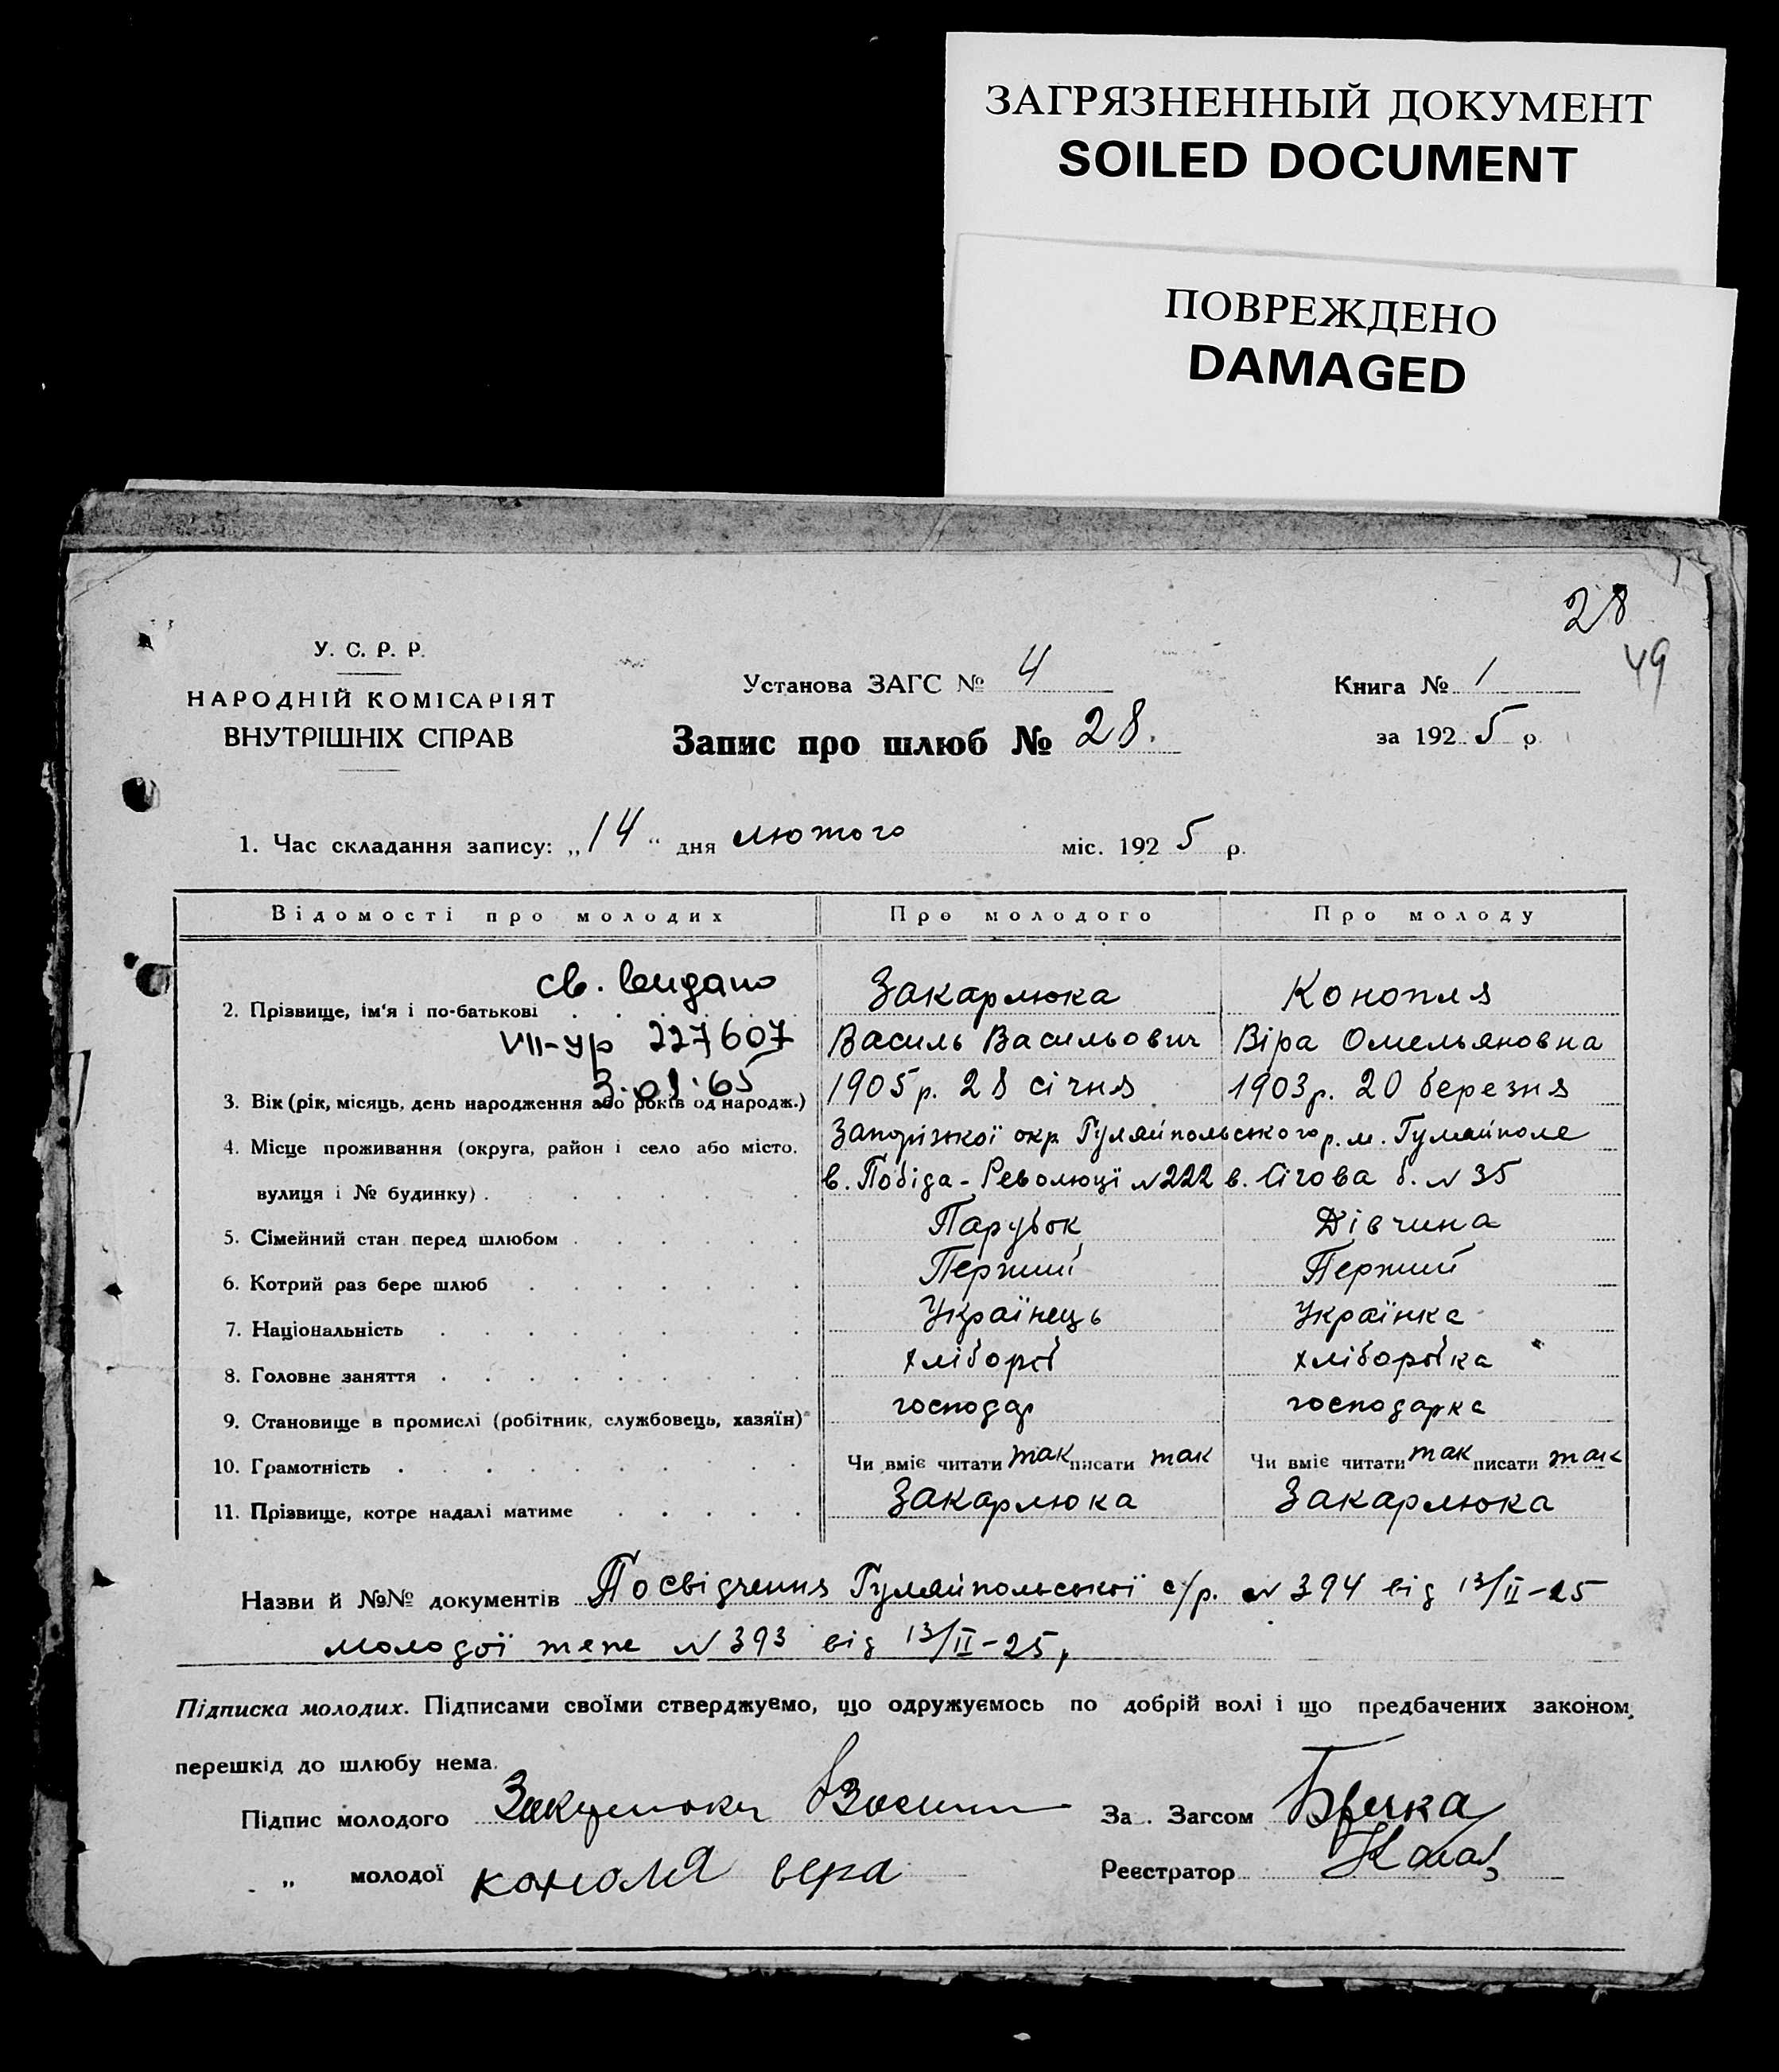 ЗАГРЯЗНЕННЫЙ ДОКУМЕНТ
SOILED DOCUMENT
ПОВРЕЖДЕНО
DAMAGED
28
49
У. С. Р. Р.
НАРОДНІЙ КОМІСАРІЯТ
ВНУТРІШНІХ СПРАВ
Установа ЗАГС № 4
Запис про шлюб № 28.
Книга № 1
за 1925 р.
1. Час складання запису: „14“ дня лютого міс. 1925 р.
Відомості про молодих Про молодого Про молоду
св. видано
2. Прізвище, ім'я і по-батькові Закарлюка Конопля
VII-УР 227607 Василь Васильович Віра Омельяновна
3.01.65
3. Вік (рік, місяць, день народження або років од народж.) 1905 р. 28 січня 1903 р. 20 березня
4. Місце проживання (округа, район і село або місто, Запорізької окр. Гуляйпольського р. м. Гуляйполе
вулиця і № будинку) . в. Побіда-Революції №222 в. Січова б. № 35
5. Сімейний стан перед шлюбом Парубок Дівчина
6. Котрий раз бере шлюб Перший Перший
7. Національність Українець Українка
8. Головне заняття хлібороб хлібороbка
9. Становище в промислі (робітник, службовець, хазяїн) господар господарка
10. Грамотність Чи вміє читати так писати так Чи вміє читати так писати так
11. Прізвище, котре надалі матиме Закарлюка Закарлюка
Назви й №№ документів Посвідчення Гуляйпольської с/р. № 394 від 13/II-25
молодої теж № 393 від 13/II-25,
Підписка молодих. Підписами своїми стверджуємо, що одружуємось по добрій волі і що предбачених законом
перешкід до шлюбу нема.
Підпис молодого Закарлюка За Загсом
„ молодої конопля вера Реєстратор